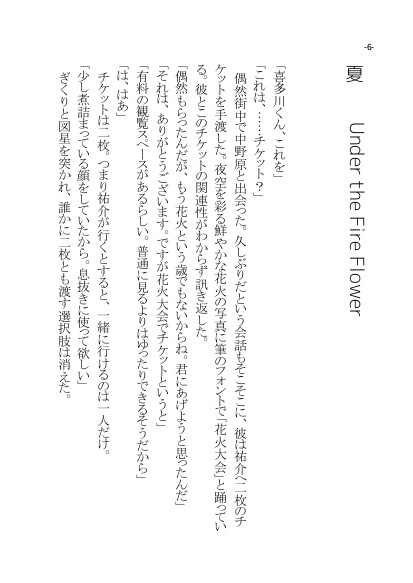 -6-
夏　Under the Fire Flower
「喜多川くん、これを」
「これは、……チケット？」
　偶然街中で中野原と出会った。久しぶりだという会話もそこそこに、彼は祐介へ二枚のチ
ケットを手渡した。夜空を彩る鮮やかな花火の写真に筆のフォントで「花火大会」と踊ってい
る。彼とこのチケットの関連性がわからず訊き返した。
「偶然もらったんだが、もう花火という歳でもないからね。君にあげようと思ったんだ」
「それは、ありがとうございます。ですが花火大会でチケットというと」
「有料の観覧スペースがあるらしい。普通に見るよりはゆったりできるそうだから」
「は、はあ」
　チケットは二枚。つまり祐介が行くとすると、一緒に行けるのは一人だけ。
「少し煮詰まっている顔をしていたから。息抜きに使って欲しい」
　ぎくりと図星を突かれ、誰かに二枚とも渡す選択肢は消えた。